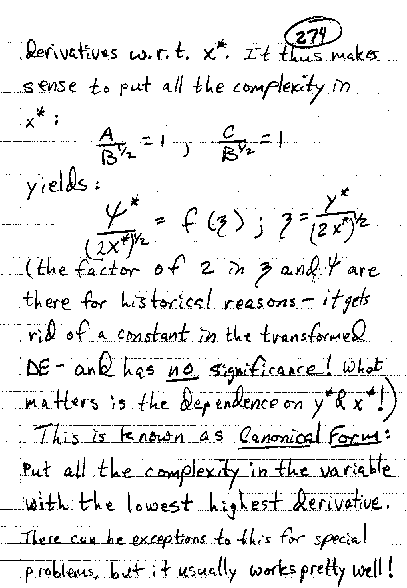 274
derivatives w.r.t. x*. It thus makes
sense to put all the complexity in
x*:
A/B^1/2 = 1 , C/B^1/2 = 1
yields:
Ψ*/(2x*)^1/2 = f(ʒ); ʒ = y*/(2x*)^1/2
(the factor of 2 in ʒ and Ψ are
there for historical reasons – it gets
rid of a constant in the transformed
DE – and has no significance! What
matters is the dependence on y* & x*!)
This is known as Canonical Form:
Put all the complexity in the variable
with the lowest highest derivative.
There can be exceptions to this for special
problems, but it usually works pretty well!